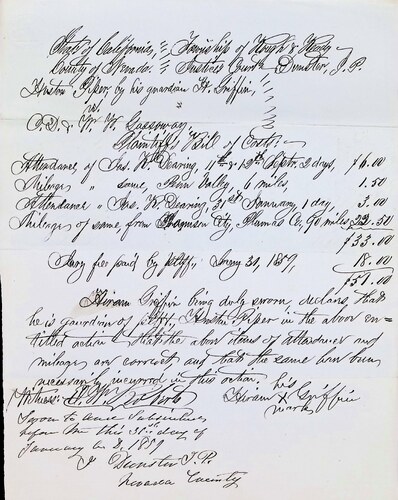 State of California, Township of Rough & Ready
County of Nevada. Justices Court Dunster, J. P.
Huston Piper by his guardian H. Griffin,
vs
W. Gassoway
Plaintiff's Bill of Costs.
Attendance of Jas. W. Dearing, 11th & 12th Septr. 2 days, $6.00
Mileage " same, Penn Vally, 6 miles, 1.50
Attendance " Jas. W. Dearing, 31st January, 1 day, 3.00
Mileage of same, from City, Plumas Co, 90 miles 22.50
$33.00
Jury fee paid by plff, Jany 31, 1859, 18.00
$51.00
Hiram Griffin being duly sworn, declares, that
he is guardian of plff, Huston Piper in the above en-
titled action - that the above items of attendance and
mileage are correct and that the same have been
necessarily incurred in this action.
his
Witness: Hiram X Griffin
mark
Sworn to and Subscribed
before me this 31st day of
January A. D. 1859
J Dunster J. P.
Nevada County